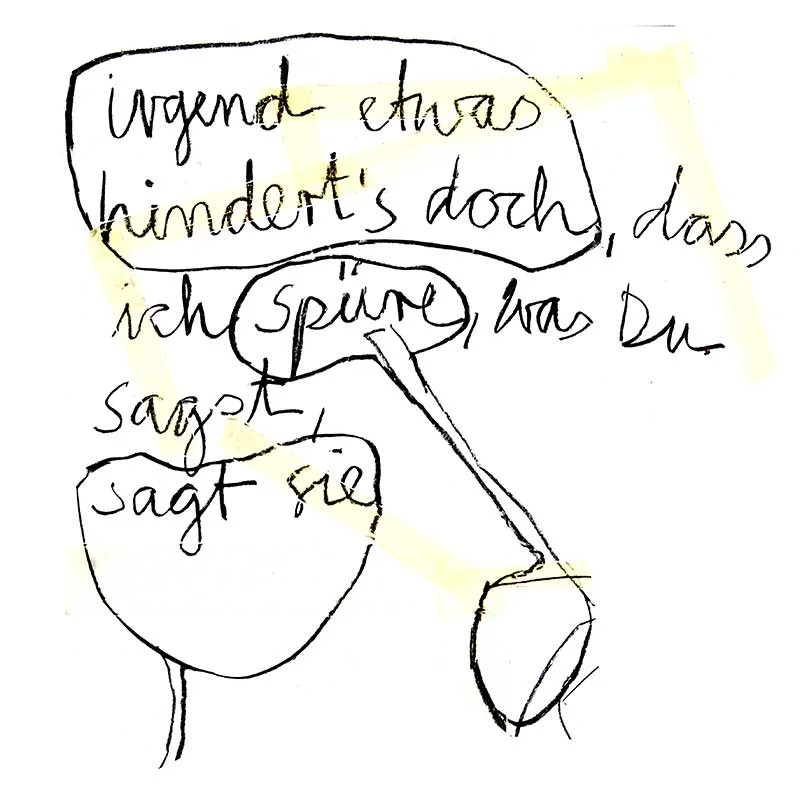 irgend etwas
hindert's doch, dass
ich spüre, was Du
sagst,
sagt sie